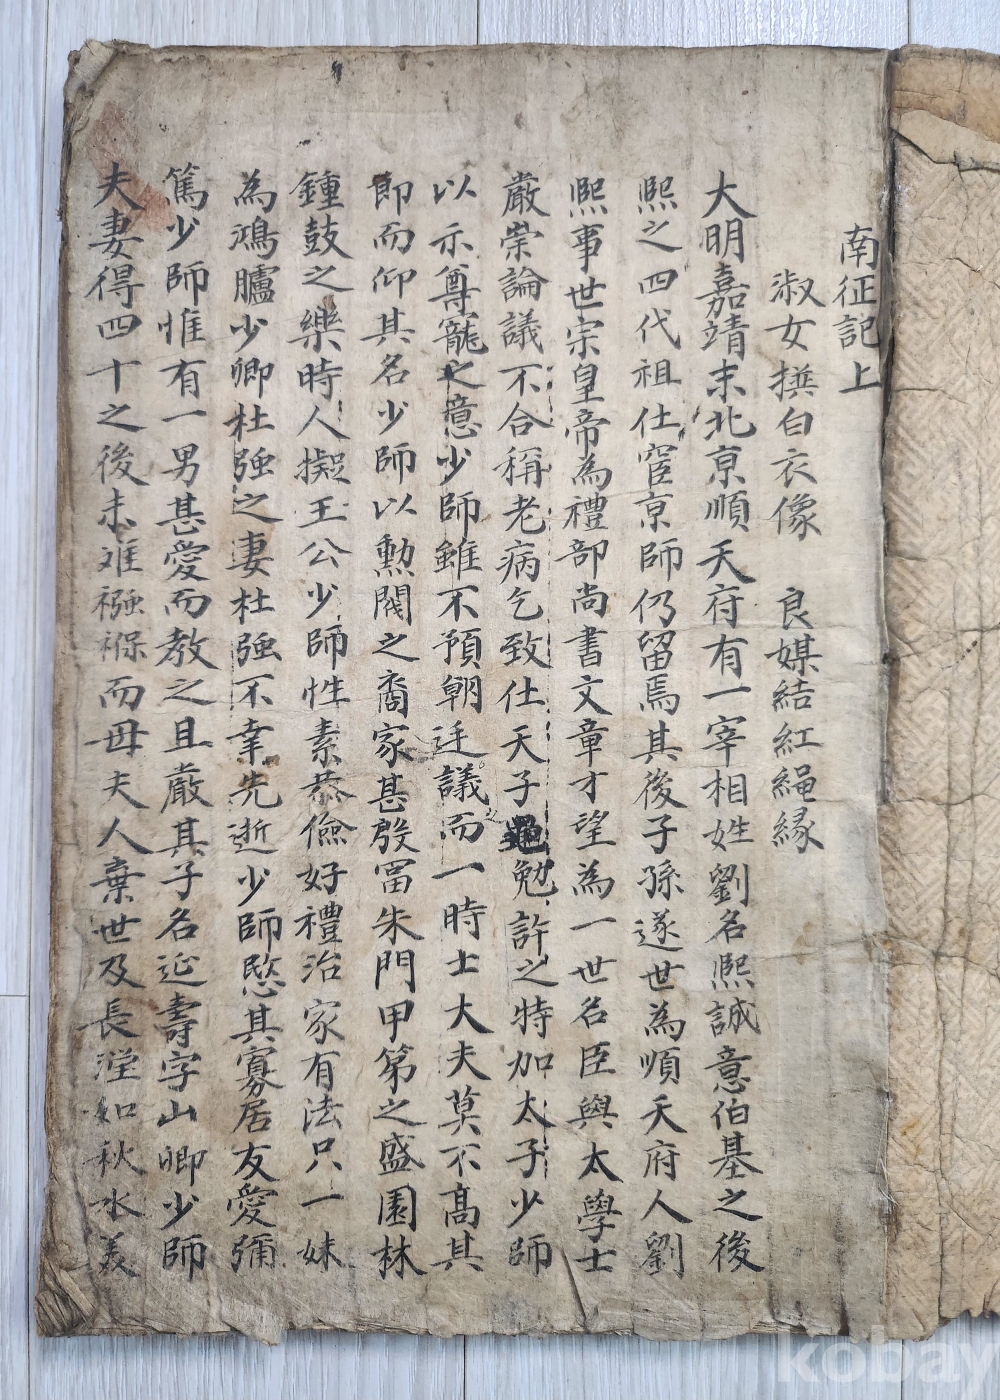 南征記上
淑女撰白衣像 良媒結紅繩緣
大明嘉靖末北京順天府有一宰相姓劉名熙誠意伯基之後
熙之四代祖仕宦京師仍留焉其後子孫遂世為順天府人劉
熙事世宗皇帝為禮部尚書文章才望為一世名臣與太學士
嚴崇論議不合稱老病乞致仕天子勉許之特加太子少師
以示尊寵之意少師雖不預朝廷議而一時士大夫莫不高其
節而仰其名少師以勳閥之裔家甚殷富朱門甲第之盛園林
鍾鼓之樂時人擬王公少師性素恭儉好禮治家有法只一妹
為鴻臚少卿杜強之妻杜強不幸先逝少師愍其寡居友愛彌
篤少師惟有一男甚愛而教之且嚴其子名延壽字山卿少師
夫妻得四十之後未難襁褓而母夫人棄世及長瀅如秋水美
kobay